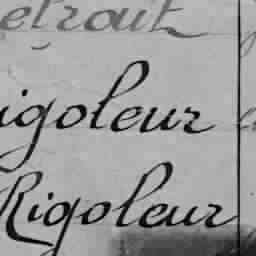 etrait
igoleur
Rigoleur